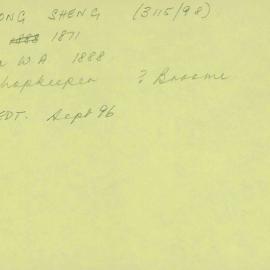 ONG SHENG (3115/98)
1888 1871
W.A 1888
hopkeeper ? Broome
EDT. Sept 96